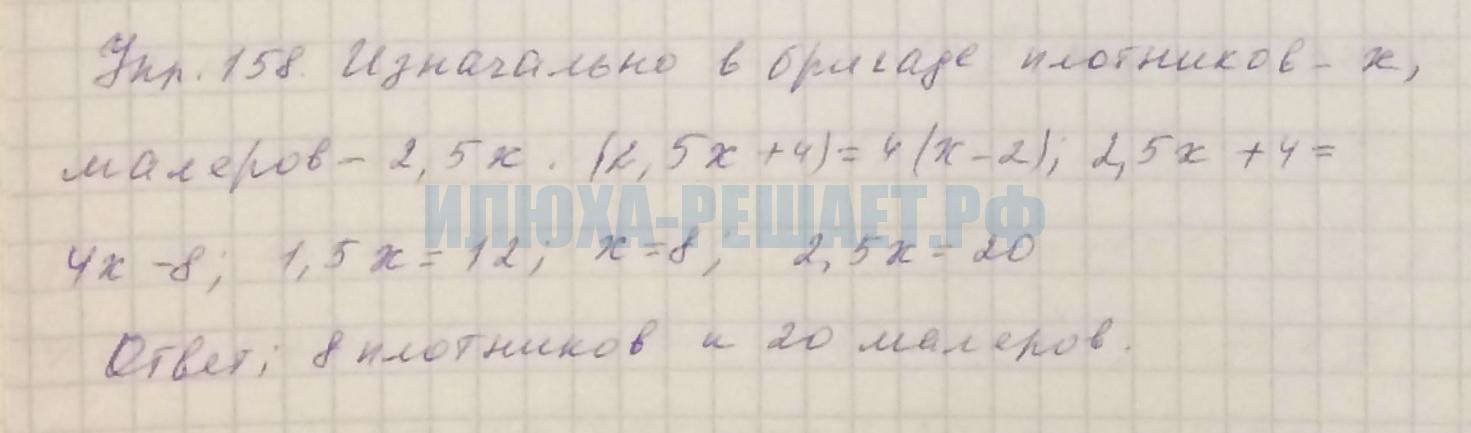 Упр. 158. Изначально в бригаде плотников - x,
малеров - 2,5x. (2,5x+4)=4(x-2); 2,5x+4=
ИЛЮХА-РЕШАЕТ.РФ
4x-8; 1,5x=12; x=8; 2,5x=20
Ответ; 8 плотников и 20 малеров.